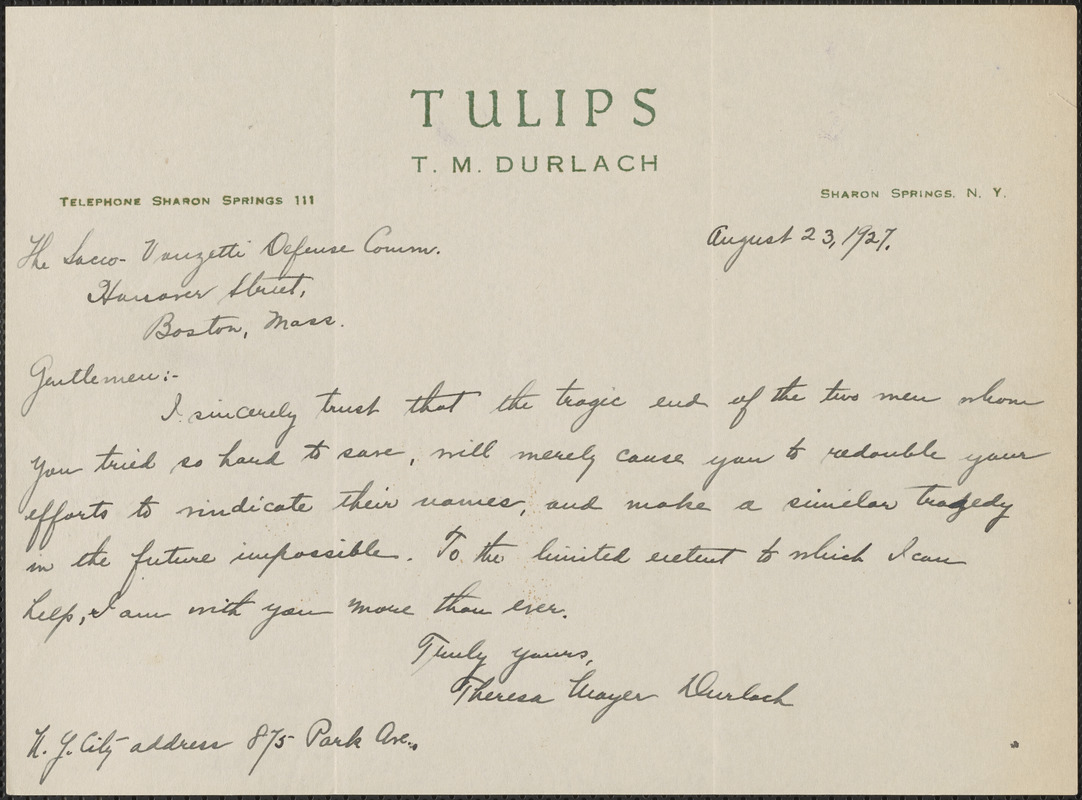 TULIPS
T. M. DURLACH
TELEPHONE SHARON SPRINGS 111
SHARON SPRINGS, N. Y.
August 23, 1927.
The Sacco-Vanzetti Defense Comm.
Hanover Street,
Boston, Mass.
Gentlemen:-
I sincerely trust that the tragic end of the two men whom
you tried so hard to save, will merely cause you to redouble your
efforts to vindicate their names, and make a similar tragedy
in the future impossible. To the limited extent to which I can
help, I am with you more than ever.
Truly yours,
Theresa Mayer Durlach
N. Y. City address 875 Park Ave.